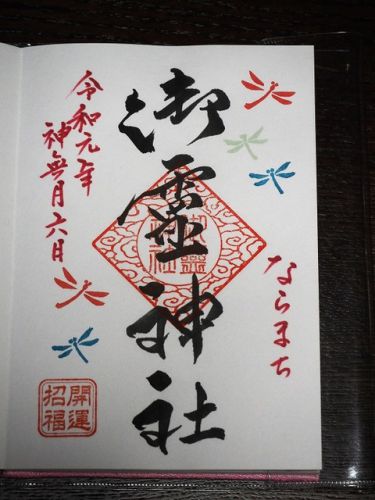 ならまち
御靈神社
御靈神社
令和元年
神無月六日
開運
招福